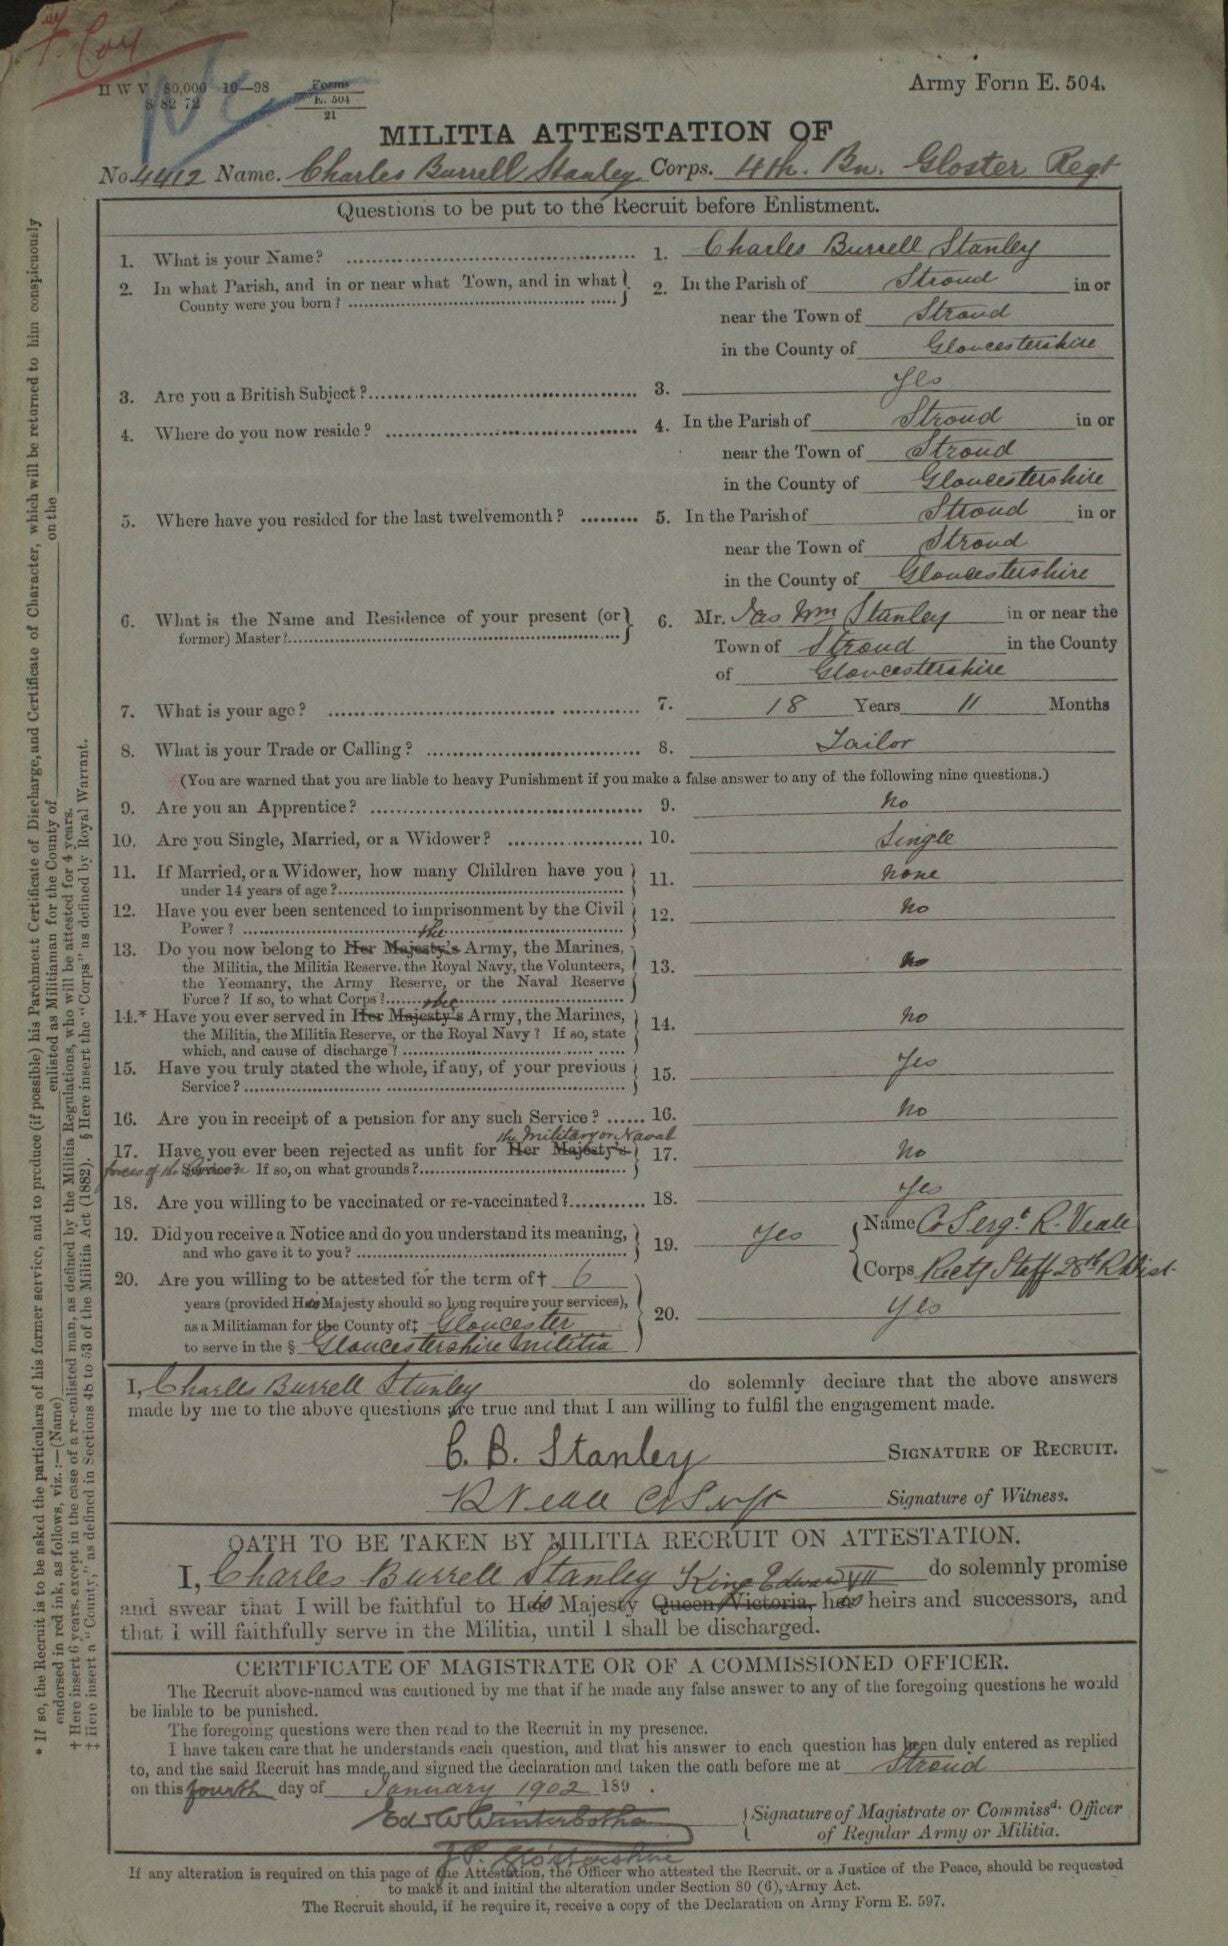 F. Coy
H W V 80,000 10—98 Forms
S 82 72 E. 504
21
Army Form E. 504.
MILITIA ATTESTATION OF
No. 4412 Name. Charles Burrell Stanley Corps. 4th. Bn. Gloster Regt
Questions to be put to the Recruit before Enlistment.
1. What is your Name? 1. Charles Burrell Stanley
2. In what Parish, and in or near what Town, and in what County were you born? 2. In the Parish of Stroud in or
near the Town of Stroud
in the County of Gloucestershire
3. Are you a British Subject? 3. Yes
4. Where do you now reside? 4. In the Parish of Stroud in or
near the Town of Stroud
in the County of Gloucestershire
5. Where have you resided for the last twelvemonth? 5. In the Parish of Stroud in or
near the Town of Stroud
in the County of Gloucestershire
6. What is the Name and Residence of your present (or former) Master? 6. Mr. Jas Wm Stanley in or near the
Town of Stroud in the County
of Gloucestershire
7. What is your age? 7. 18 Years 11 Months
8. What is your Trade or Calling? 8. Tailor
(You are warned that you are liable to heavy Punishment if you make a false answer to any of the following nine questions.)
9. Are you an Apprentice? 9. No
10. Are you Single, Married, or a Widower? 10. Single
11. If Married, or a Widower, how many Children have you
under 14 years of age? 11. none
12. Have you ever been sentenced to imprisonment by the Civil
Power? 12. No
the
13. Do you now belong to Her Majesty's Army, the Marines,
the Militia, the Militia Reserve, the Royal Navy, the Volunteers,
the Yeomanry, the Army Reserve, or the Naval Reserve
Force? If so, to what Corps? 13. No
the
14.* Have you ever served in Her Majesty's Army, the Marines,
the Militia, the Militia Reserve, or the Royal Navy? If so, state
which, and cause of discharge? 14. No
15. Have you truly stated the whole, if any, of your previous
Service? 15. Yes
16. Are you in receipt of a pension for any such Service? 16. No
the Military or Naval
17. Have you ever been rejected as unfit for Her Majesty's
forces of the Crown Service? If so, on what grounds? 17. No
18. Are you willing to be vaccinated or re-vaccinated? 18. Yes
19. Did you receive a Notice and do you understand its meaning,
and who gave it to you? 19. Yes Name C Sergt R. Veale
Corps Rectg Staff 28th R Dist
20. Are you willing to be attested for the term of † 6
years (provided His Majesty should so long require your services),
as a Militiaman for the County of ‡ Gloucester
to serve in the § Gloucestershire Militia 20. Yes
I, Charles Burrell Stanley do solemnly declare that the above answers
made by me to the above questions are true and that I am willing to fulfil the engagement made.
C. B. Stanley SIGNATURE OF RECRUIT.
R Veale C Sergt Signature of Witness.
OATH TO BE TAKEN BY MILITIA RECRUIT ON ATTESTATION.
I, Charles Burrell Stanley King Edward VII do solemnly promise
and swear that I will be faithful to His Majesty Queen Victoria, his heirs and successors, and
that I will faithfully serve in the Militia, until I shall be discharged.
CERTIFICATE OF MAGISTRATE OR OF A COMMISSIONED OFFICER.
The Recruit above-named was cautioned by me that if he made any false answer to any of the foregoing questions he would
be liable to be punished.
The foregoing questions were then read to the Recruit in my presence.
I have taken care that he understands each question, and that his answer to each question has been duly entered as replied
to, and the said Recruit has made and signed the declaration and taken the oath before me at Stroud
on this fourth day of January 1902 189 .
Ed. W Winterbotham Signature of Magistrate or Commissd. Officer
of Regular Army or Militia.
J.P. Glostershire
If any alteration is required on this page of the Attestation, the Officer who attested the Recruit, or a Justice of the Peace, should be requested
to make it and initial the alteration under Section 80 (6), Army Act.
The Recruit should, if he require it, receive a copy of the Declaration on Army Form E. 597.
* If so, the Recruit is to be asked the particulars of his former service, and to produce (if possible) his Parchment Certificate of Discharge, and Certificate of Character, which will be returned to him conspicuously
endorsed in red ink, as follows, viz.:—(Name) enlisted as Militiaman for the County of on the
† Here insert 6 years, except in the case of a re-enlisted man, as defined by the Militia Regulations, who will be attested for 4 years.
‡ Here insert a "County," as defined in Sections 48 to 53 of the Militia Act (1882). § Here insert the "Corps" as defined by Royal Warrant.